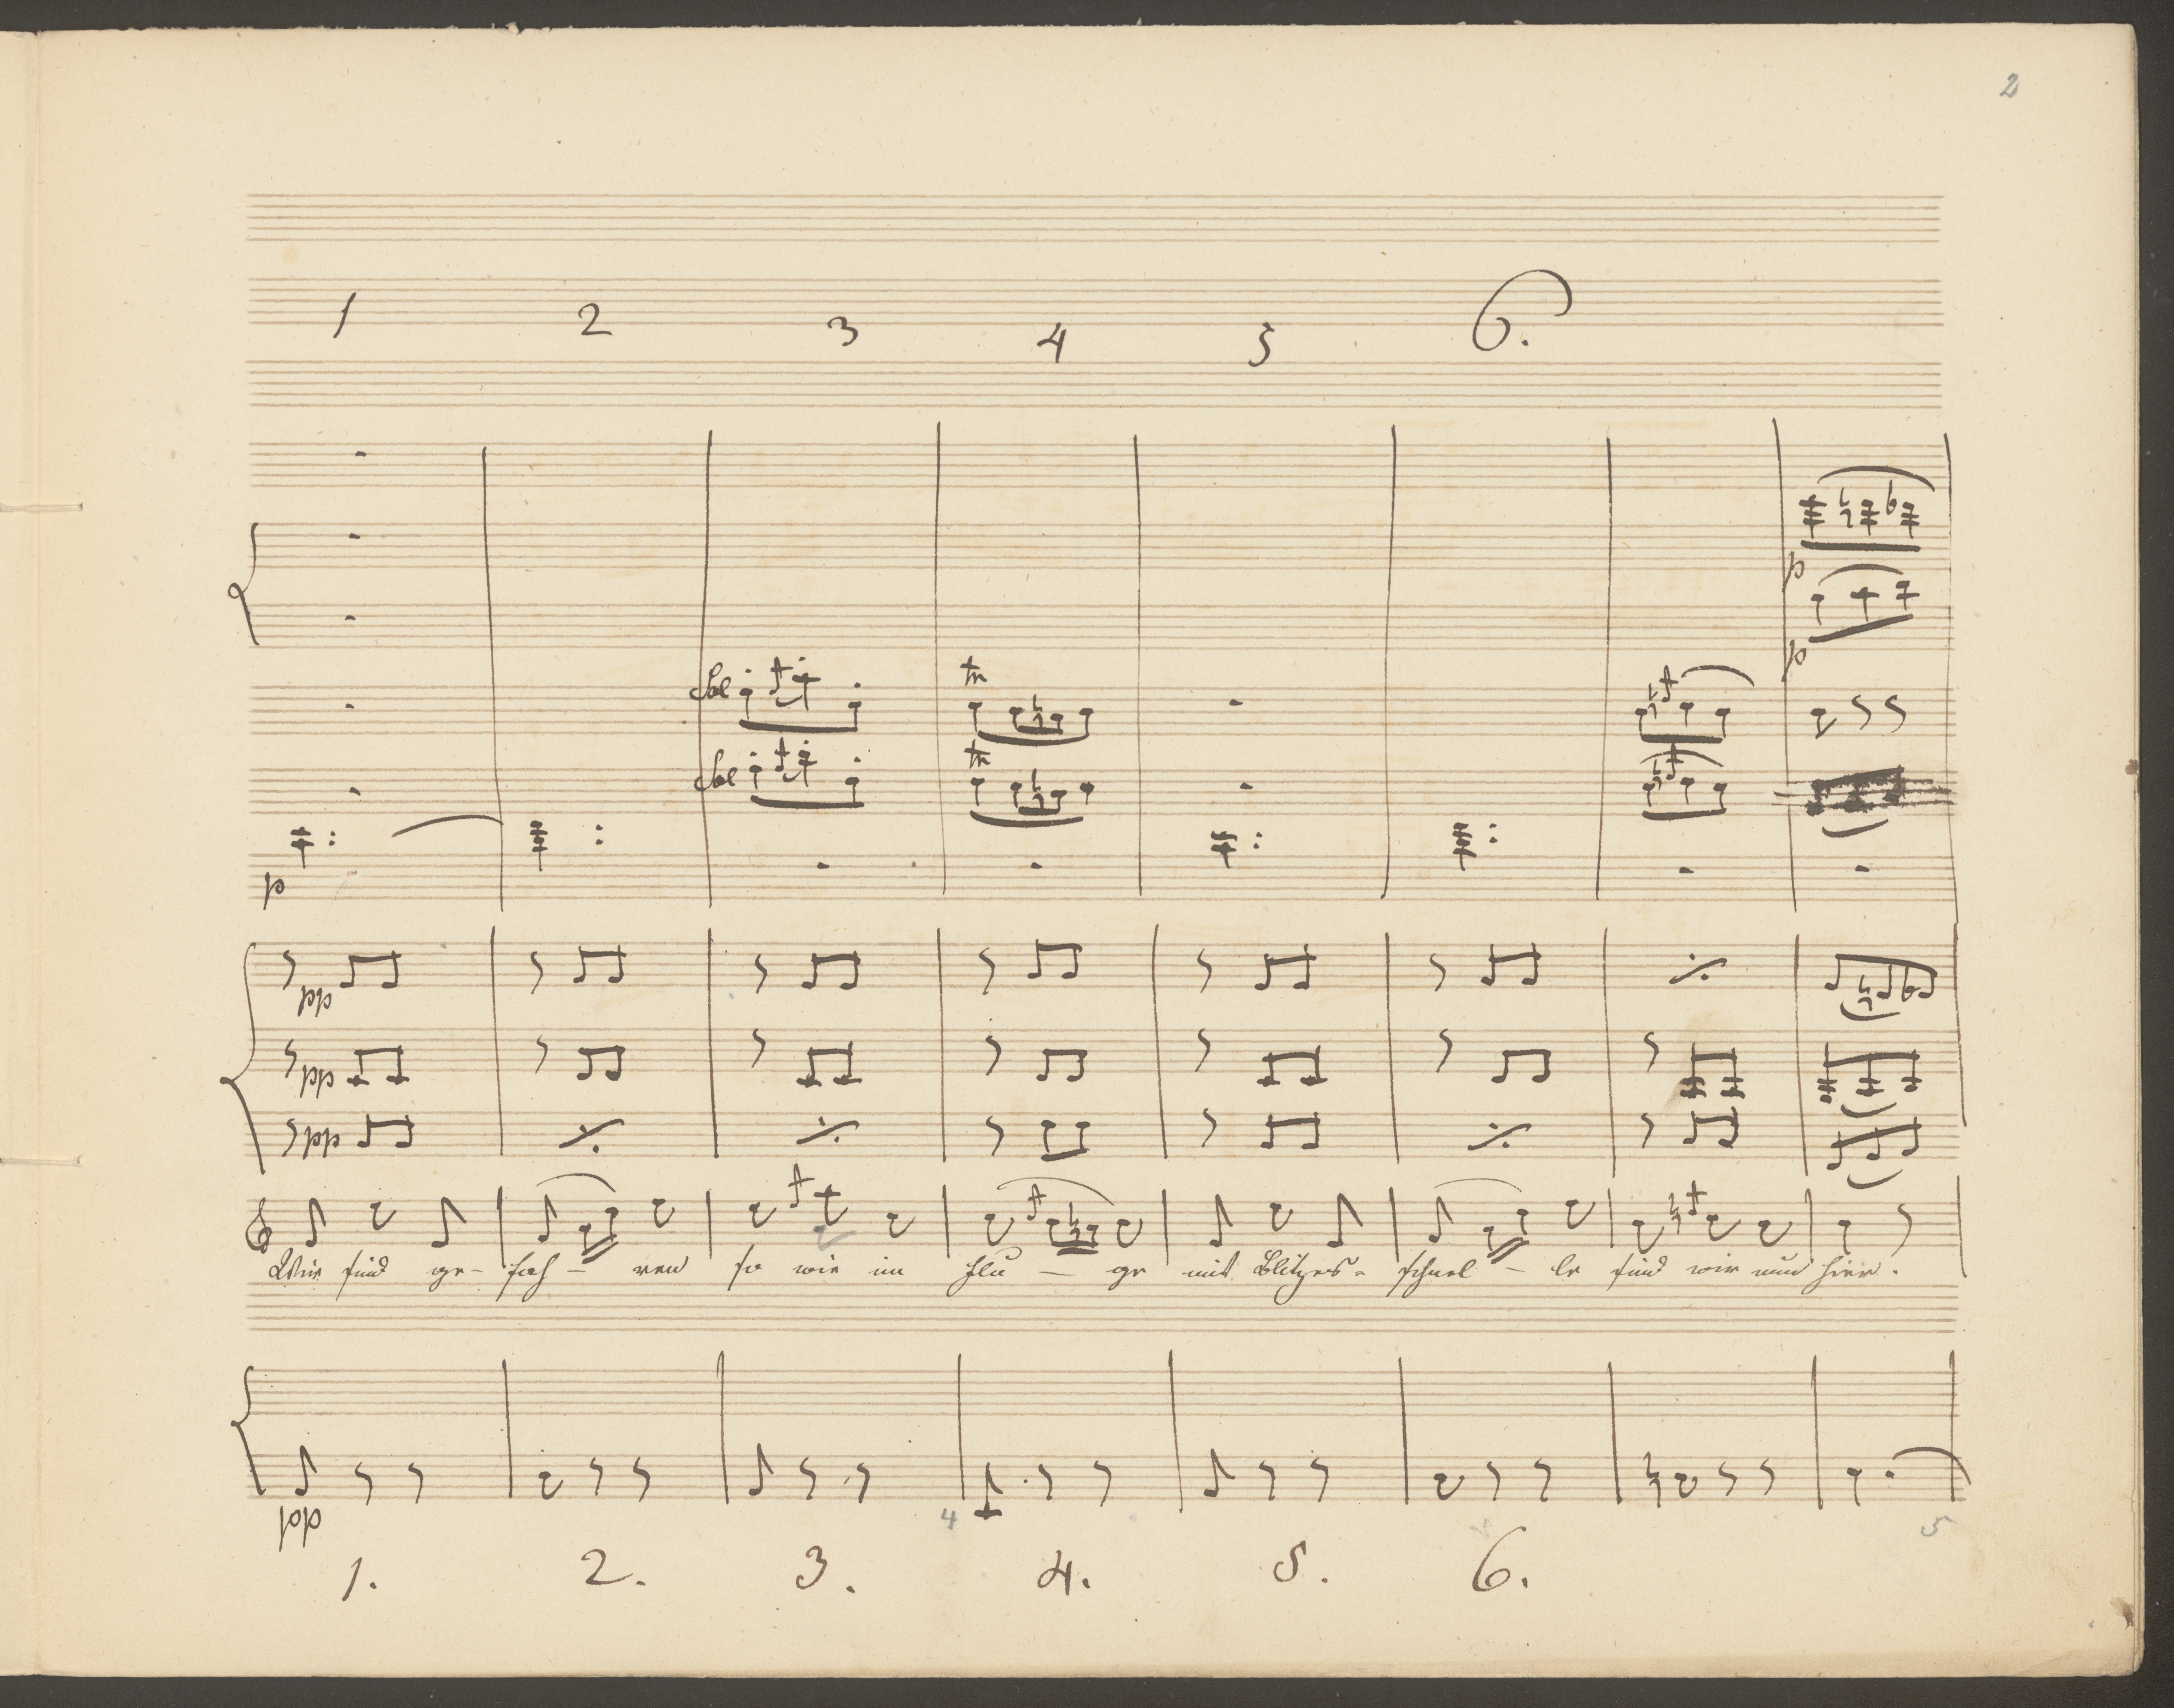 2
1 2 3 4 5 6.
p
p
Sol tr
Sol tr
p
pp
pp
pp
Wir sind ge- fah - ren so wie im Flu - ge mit Blitzes- schnel - le sind wir nun hier.
pp
4 5
1. 2. 3. 4. 5. 6.